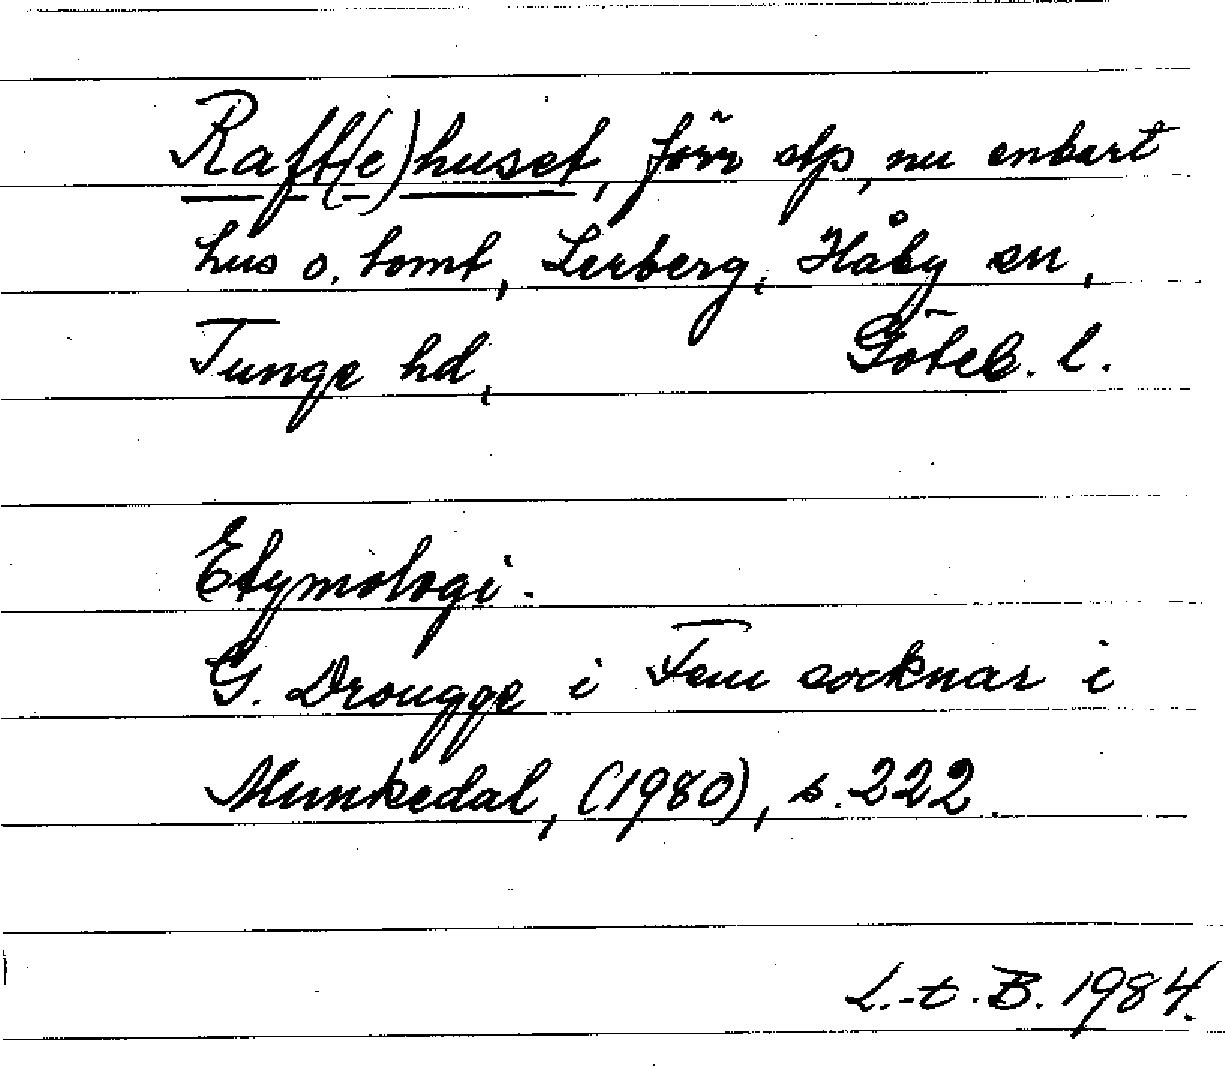 Raft(e)huset, förr stp, nu enbart
hus o. tomt, Lerberg, Håby sn,
Tunge hd, Göteb. l.
Etymologi.
G. Drougge i Fem socknar i
Munkedal, (1980), s. 222.
L.-t. B. 1984.